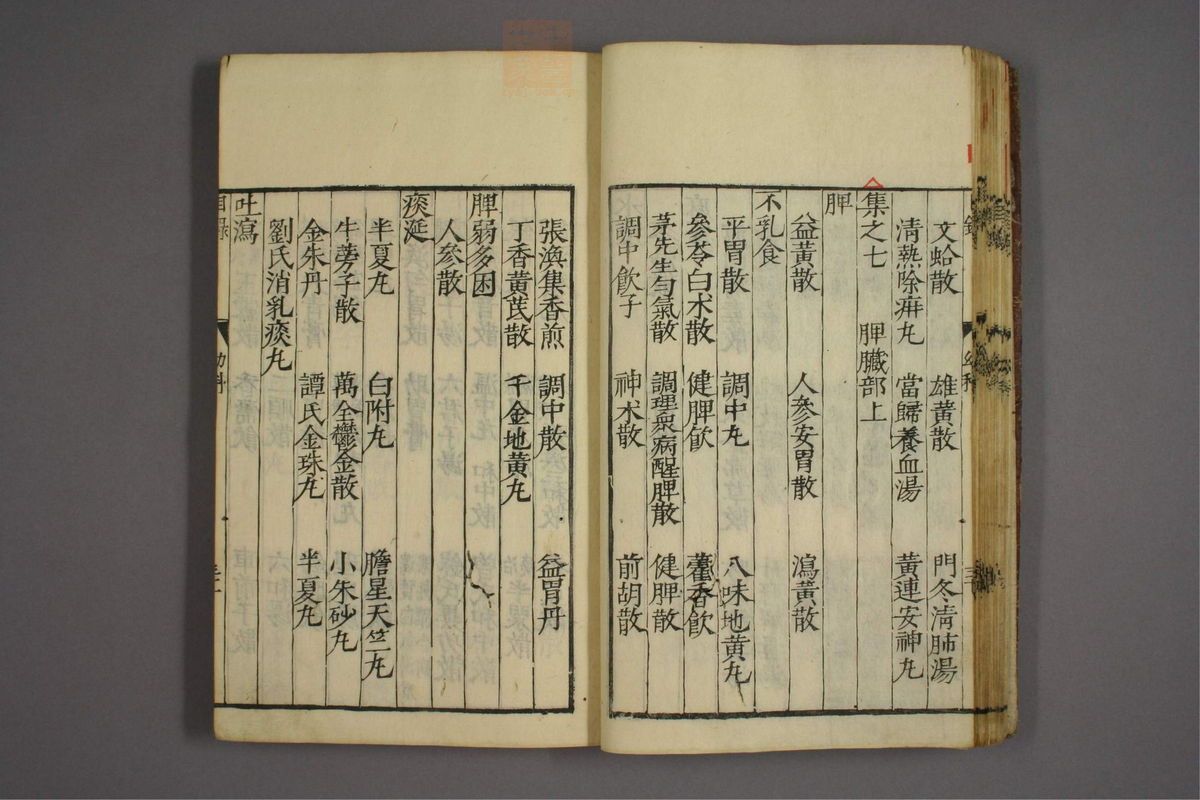 文蛤散 雄黃散 門冬淸肺湯
清熱除疳丸 當歸養血湯 黃連安神丸
集之七 脾臟部上
脾
益黃散 人參安胃散 瀉黃散
不乳食
平胃散 調中丸 八味地黃丸
參苓白朮散 健脾飮 藿香飮
茅先生勻氣散 調理衆病醒脾散 健脾散
調中飮子 神朮散 前胡散
張渙集香煎 調中散 益胃丹
丁香黃芪散 千金地黃丸
脾弱多困
人參散
痰涎
半夏丸 白附丸 膽星天竺丸
牛蒡子散 萬全鬱金散 小朱砂丸
金朱丹 譚氏金珠丸 半夏丸
劉氏消乳痰丸
吐瀉
目錄 幼科